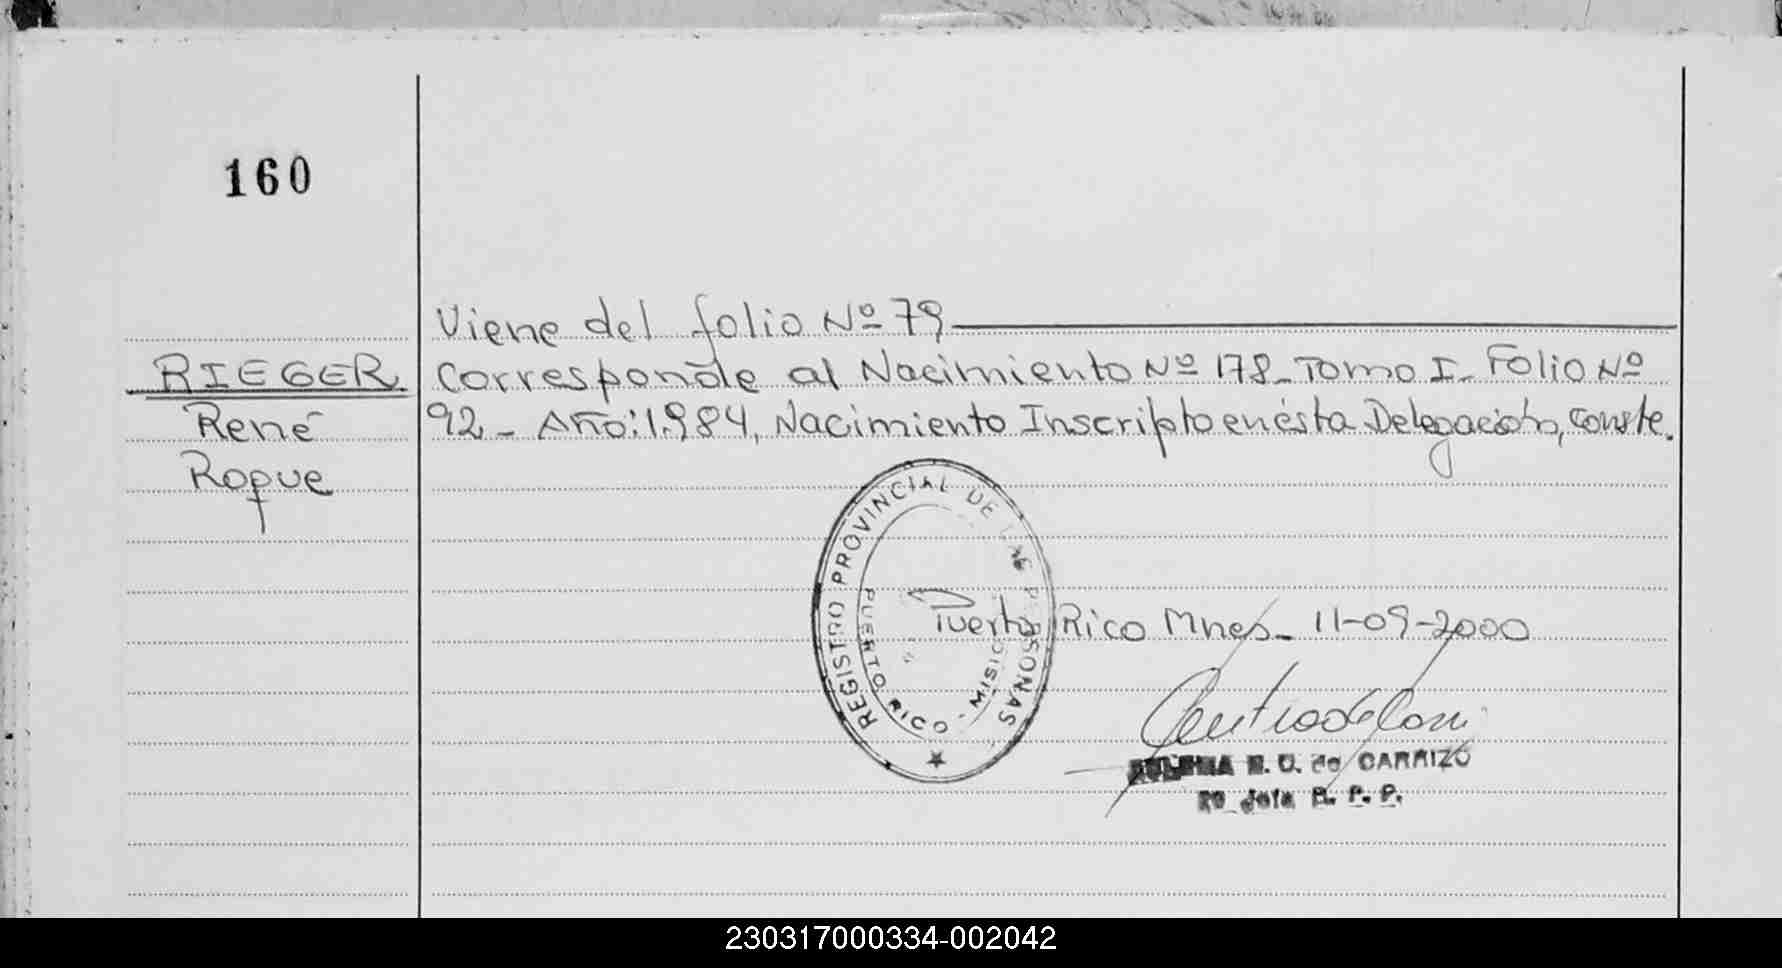 160
Viene del folio Nº 79
RIEGER
René
Roque
Corresponde al Nacimiento Nº 178_Tomo I_ Folio Nº
92_ Año:1.984, Nacimiento Inscripto en ésta Delegación, conste.
REGISTRO PROVINCIAL DE LAS PERSONAS
PUERTO RICO - MISIO
Puerto Rico Mnes_ 11-09-2000
de CARRIZO
Jefa R. P. P.
230317000334-002042